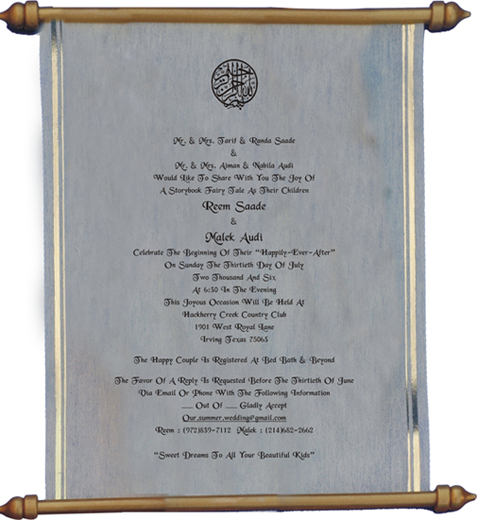 Mr. & Mrs. Tarif & Randa Saade
&
Mr. & Mrs. Aiman & Nabila Audi
Would Like To Share With You The Joy Of
A Storybook Fairy Tale As Their Children
Reem Saade
&
Malek Audi
Celebrate The Beginning Of Their "Happily-Ever-After"
On Sunday The Thirtieth Day Of July
Two Thousand And Six
At 6:30 In The Evening
This Joyous Occasion Will Be Held At
Hackberry Creek Country Club
1901 West Royal Lane
Irving Texas 75063
The Happy Couple Is Registered At Bed Bath & Beyond
The Favor Of A Reply Is Requested Before The Thirtieth Of June
Via Email Or Phone With The Following Information
___ Out Of ___ Gladly Accept
Our.summer.wedding@gmail.com
Reem : (972)839-7112 Malek : (214)682-2662
"Sweet Dreams To All Your Beautiful Kids"